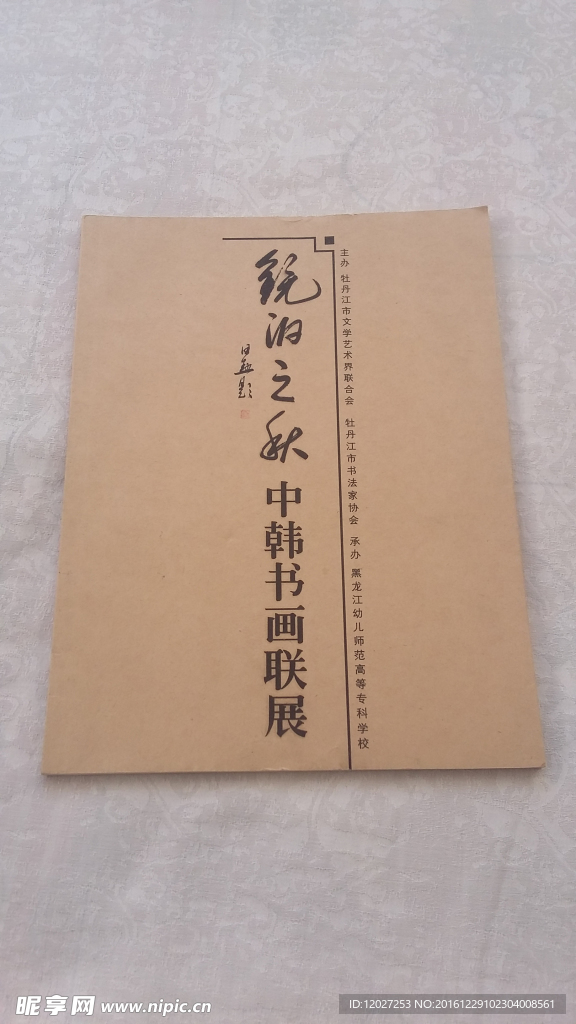 镜泊之秋 中韩书画联展
题
主办 牡丹江市文学艺术界联合会 牡丹江市书法家协会 承办 黑龙江幼儿师范高等专科学校
昵享网 www.nipic.cn
ID:12027253 NO:20161229102304008561